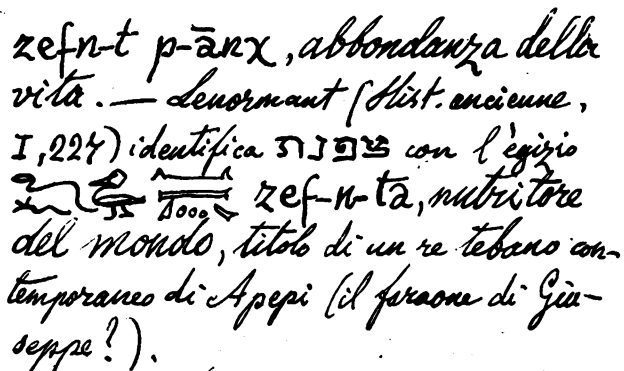 zefn-t p-ānχ, abbondanza della
vita. — Lenormant (Hist. ancienne,
I, 227) identifica צפנת con l'egizio
zef-n-ta, nutritore
del mondo, titolo di un re tebano con-
temporaneo di Apepi (il faraone di Giu-
seppe?).